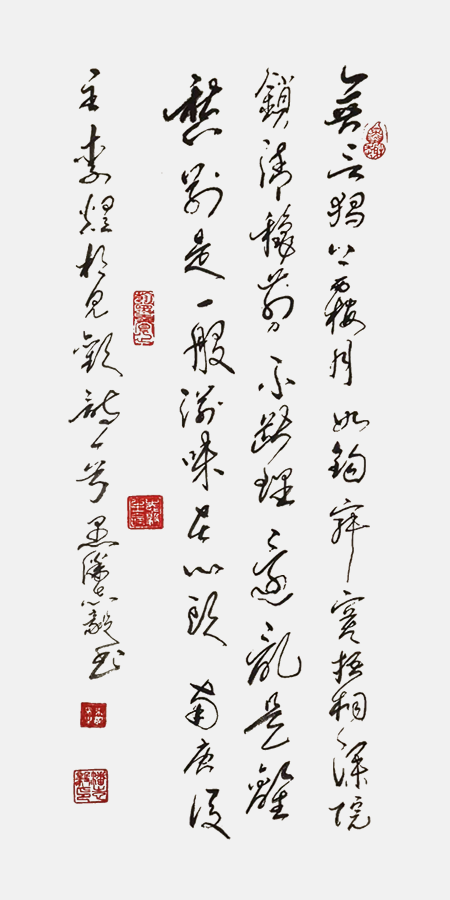 無言獨上西樓月如鉤寂寞梧桐深院
鎖清秋剪不斷理還亂是離
愁別是一般滋味在心頭 南唐後
主李煜相見歡詞一首 潘志毅书
潘志毅印